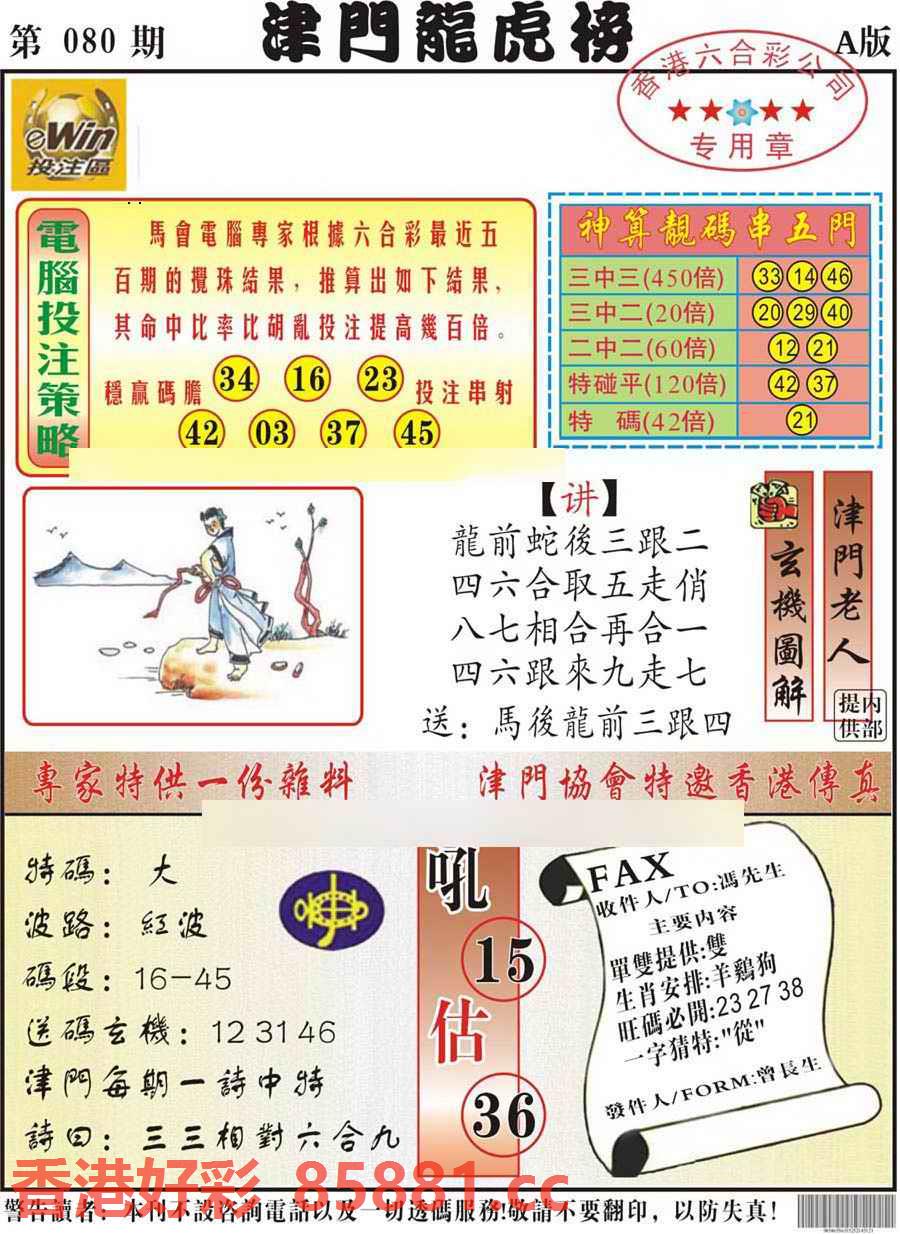 第 080 期
津門龍虎榜
A版
香港六合彩公司
专用章
eWin
投注區
電腦投注策略
馬會電腦專家根據六合彩最近五
百期的攪珠結果，推算出如下結果，
其命中比率比胡亂投注提高幾百倍。
穩贏碼膽 34 16 23 投注串射
42 03 37 45
神算靚碼串五門
三中三(450倍) 33 14 46
三中二(20倍) 20 29 40
二中二(60倍) 12 21
特碰平(120倍) 42 37
特 碼(42倍) 21
【讲】
龍前蛇後三跟二
四六合取五走俏
八七相合再合一
四六跟來九走七
送：馬後龍前三跟四
玄機圖解
津門老人
内部提供
專家特供一份雜料
津門協會特邀香港傳真
特碼：大
波路：紅波
碼段：16-45
送碼玄機：12 31 46
津門每期一詩中特
詩曰：三三相對六合九
吼
15
估
36
FAX
收件人/TO:馮先生
主要内容
單雙提供:雙
生肖安排:羊鷄狗
旺碼必開:23 27 38
一字猜特:"從"
發件人/FORM:曾長生
香港好彩 85881.cc
警告讀者：本刊不設咨詢電話以及一切透碼服務!敬請不要翻印，以防失真!